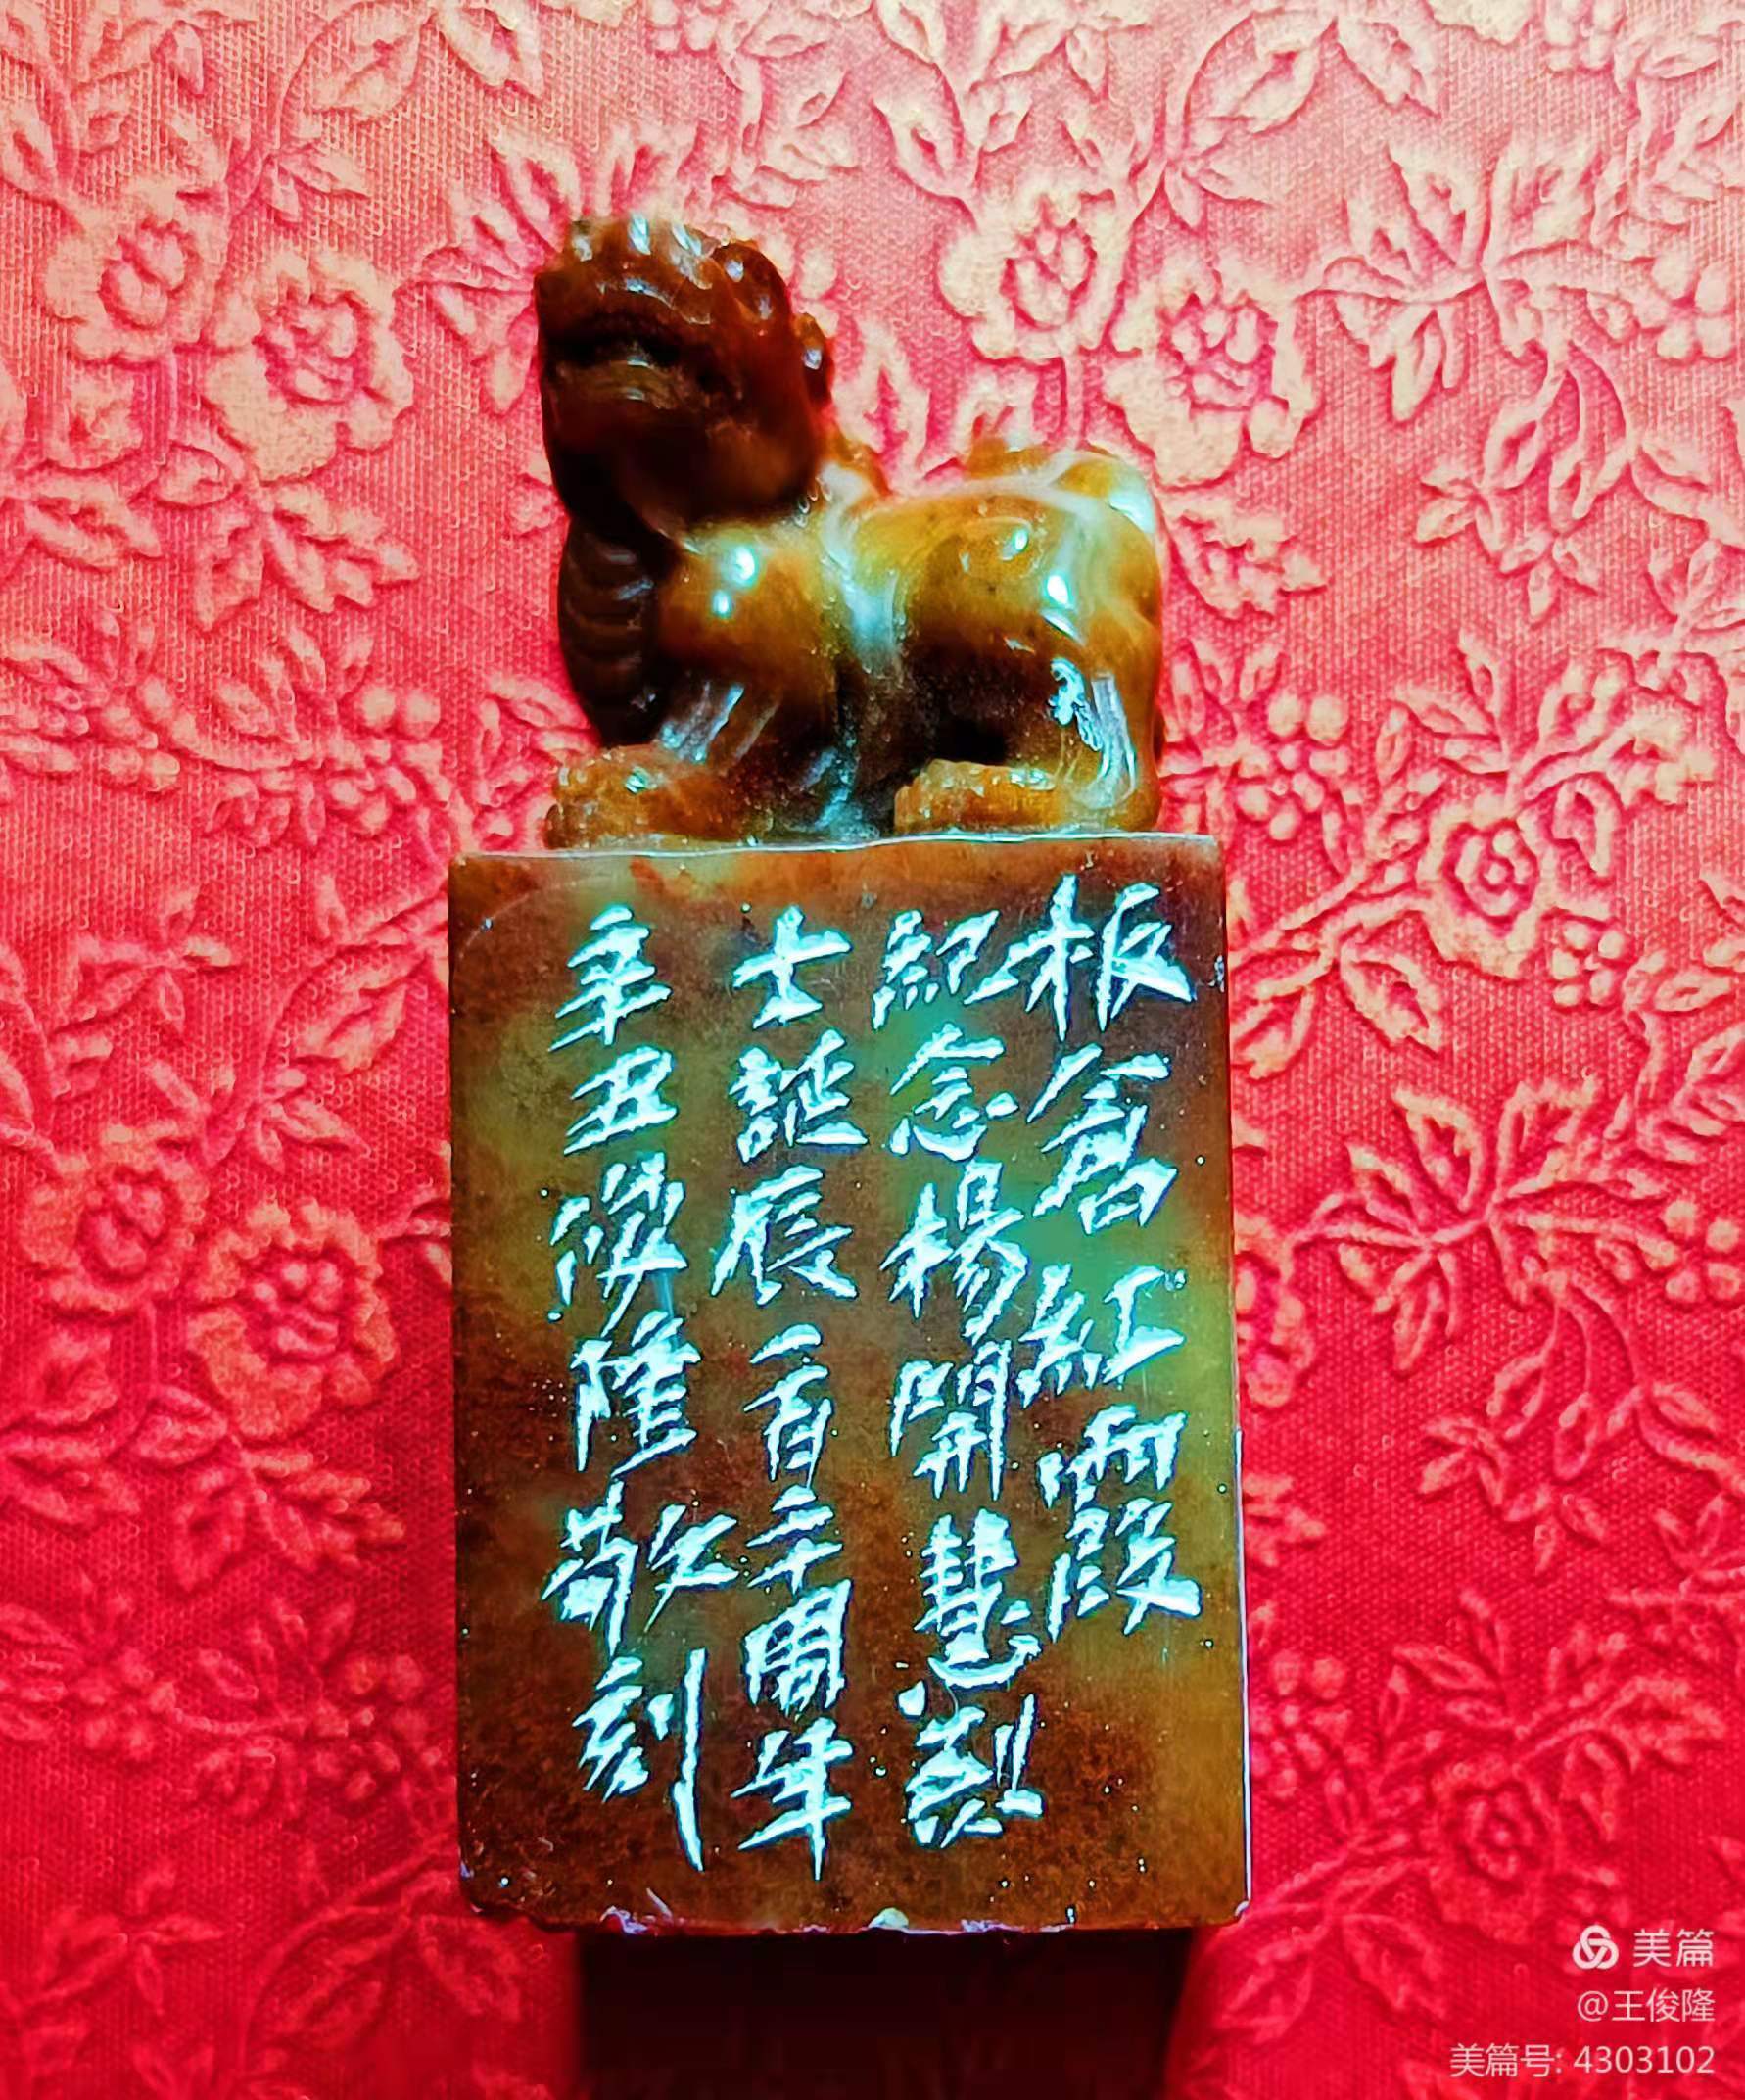 板倉紅霞
紀念楊開慧烈
士誕辰一百二十周年
辛丑俊隆敬刻
美篇
@王俊隆
美篇号: 4303102